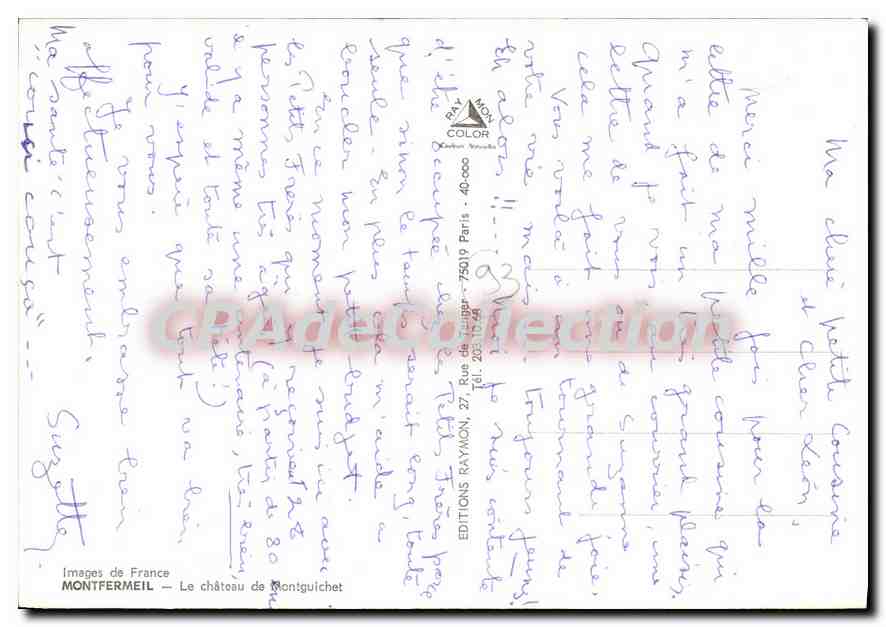 Ma chère petite Cousine
et cher Léon,
Merci mille fois pour la
lettre de ma petite cousine qui
m'a fait un très grand plaisir.
Quand je vois au courrier, une
lettre de vous ou de Suzanne
cela me fait une grande joie.
Vous voilà à un tournant de
votre vie mais toujours jeunes!
Eh alors!!... Moi je suis contente
d'être occupée chez les Petits Frères parce
que sinon le temps serait long, toute
seule. En plus cela m'aide à
boucler mon petit budget.
En ce moment je suis ici avec
les Petits Frères qui y reçoivent 28
personnes très âgées (à partir de 80 ans
il y a même une centenaire, très bien,
valide et toute sa tête!)
J'espère que tout va bien
pour vous.
Je vous embrasse bien
affectueusement.
Ma santé c'est
"couci couça"...
Suzette
RAYMON
COLOR
Couleurs Naturelles
EDITIONS RAYMON, 27, Rue de Tanger - 75019 Paris - 40-000
Tél. 203.10.49
93
CPAdeCollection
Images de France
MONTFERMEIL — Le château de Montguichet